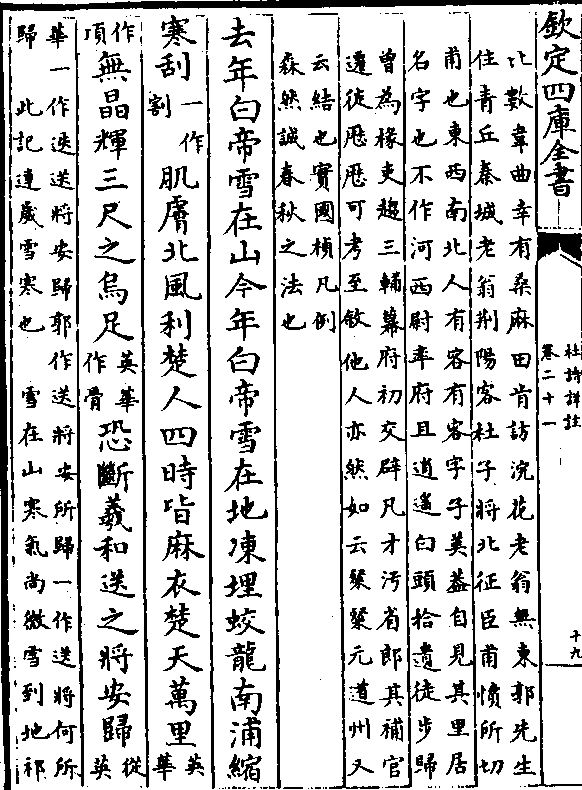 欽定四庫全書
杜詩詳註
卷二十一
十九
比數韋曲幸有桑麻田肯訪浣花老翁無東郭先生
住青丘秦城老翁荆陽客杜子將北征臣甫憤所切
甫也東西南北人有客有客字子美蓋自見其里居
名字也不作河西尉率府且逍遙白頭拾遺徒步歸
曾為掾吏趨三輔幕府初交辟凡才汚省郎其補官
遷徙歷歷可考至敘他人亦然如云粲粲元道州又
云結也實國楨凡例
森然誠春秋之法也
去年白帝雪在山今年白帝雪在地凍埋蛟龍南浦縮
寒刮一作割肌膚北風利楚人四時皆麻衣楚天萬里英華
作項無晶輝三尺之烏足英華作骨恐斷羲和送之將安歸從英
華一作迭送將安歸郭作送將安所歸一作送將何所
歸 此記連歲雪寒也 雪在山寒氣尚微雪到地祁